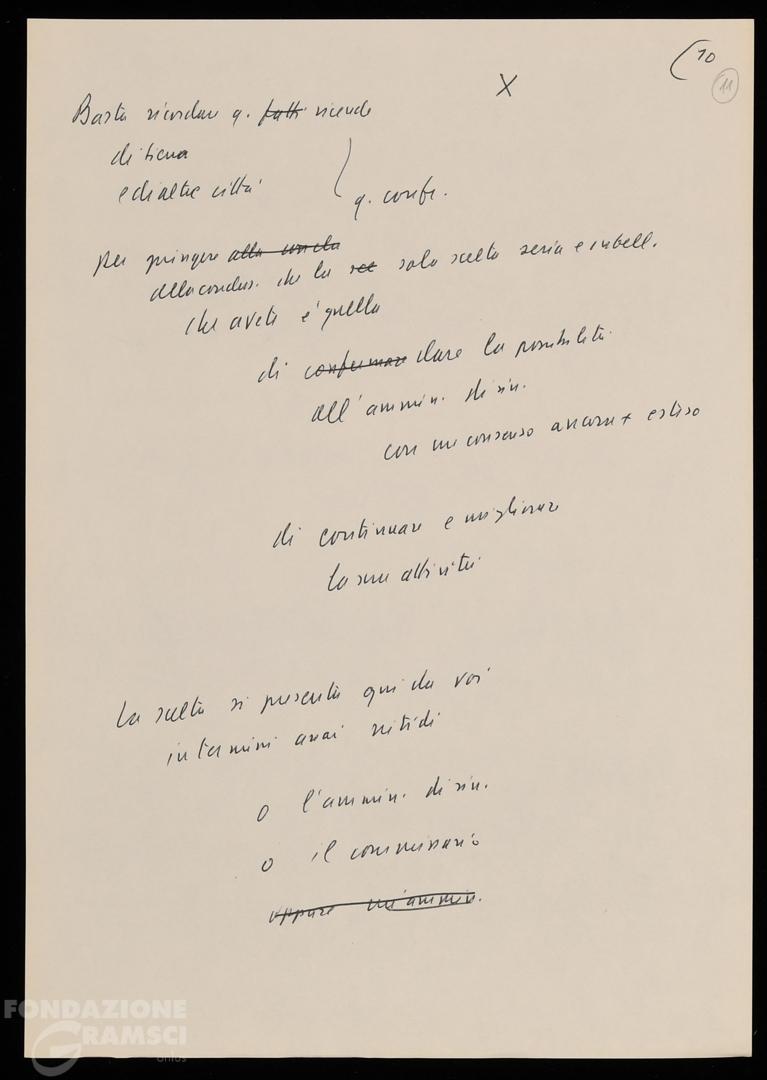 10
11
X
Basta ricordare q. fatti vicende
di Siena
e di altre città
q. confr.
per giungere alla concla
alla conclus. che la sce sola scelta seria e intell.
che avete e' quella
di confermare dare la possibilità
all'ammin. di sin.
con un consenso ancora + esteso
di continuare e migliorare
la sua attività
La scelta si presenta qui da voi
in termini assai nitidi
o l'ammin. di sin.
o il commissario
oppure un'ammin.
FONDAZIONE
GRAMSCI
onlus